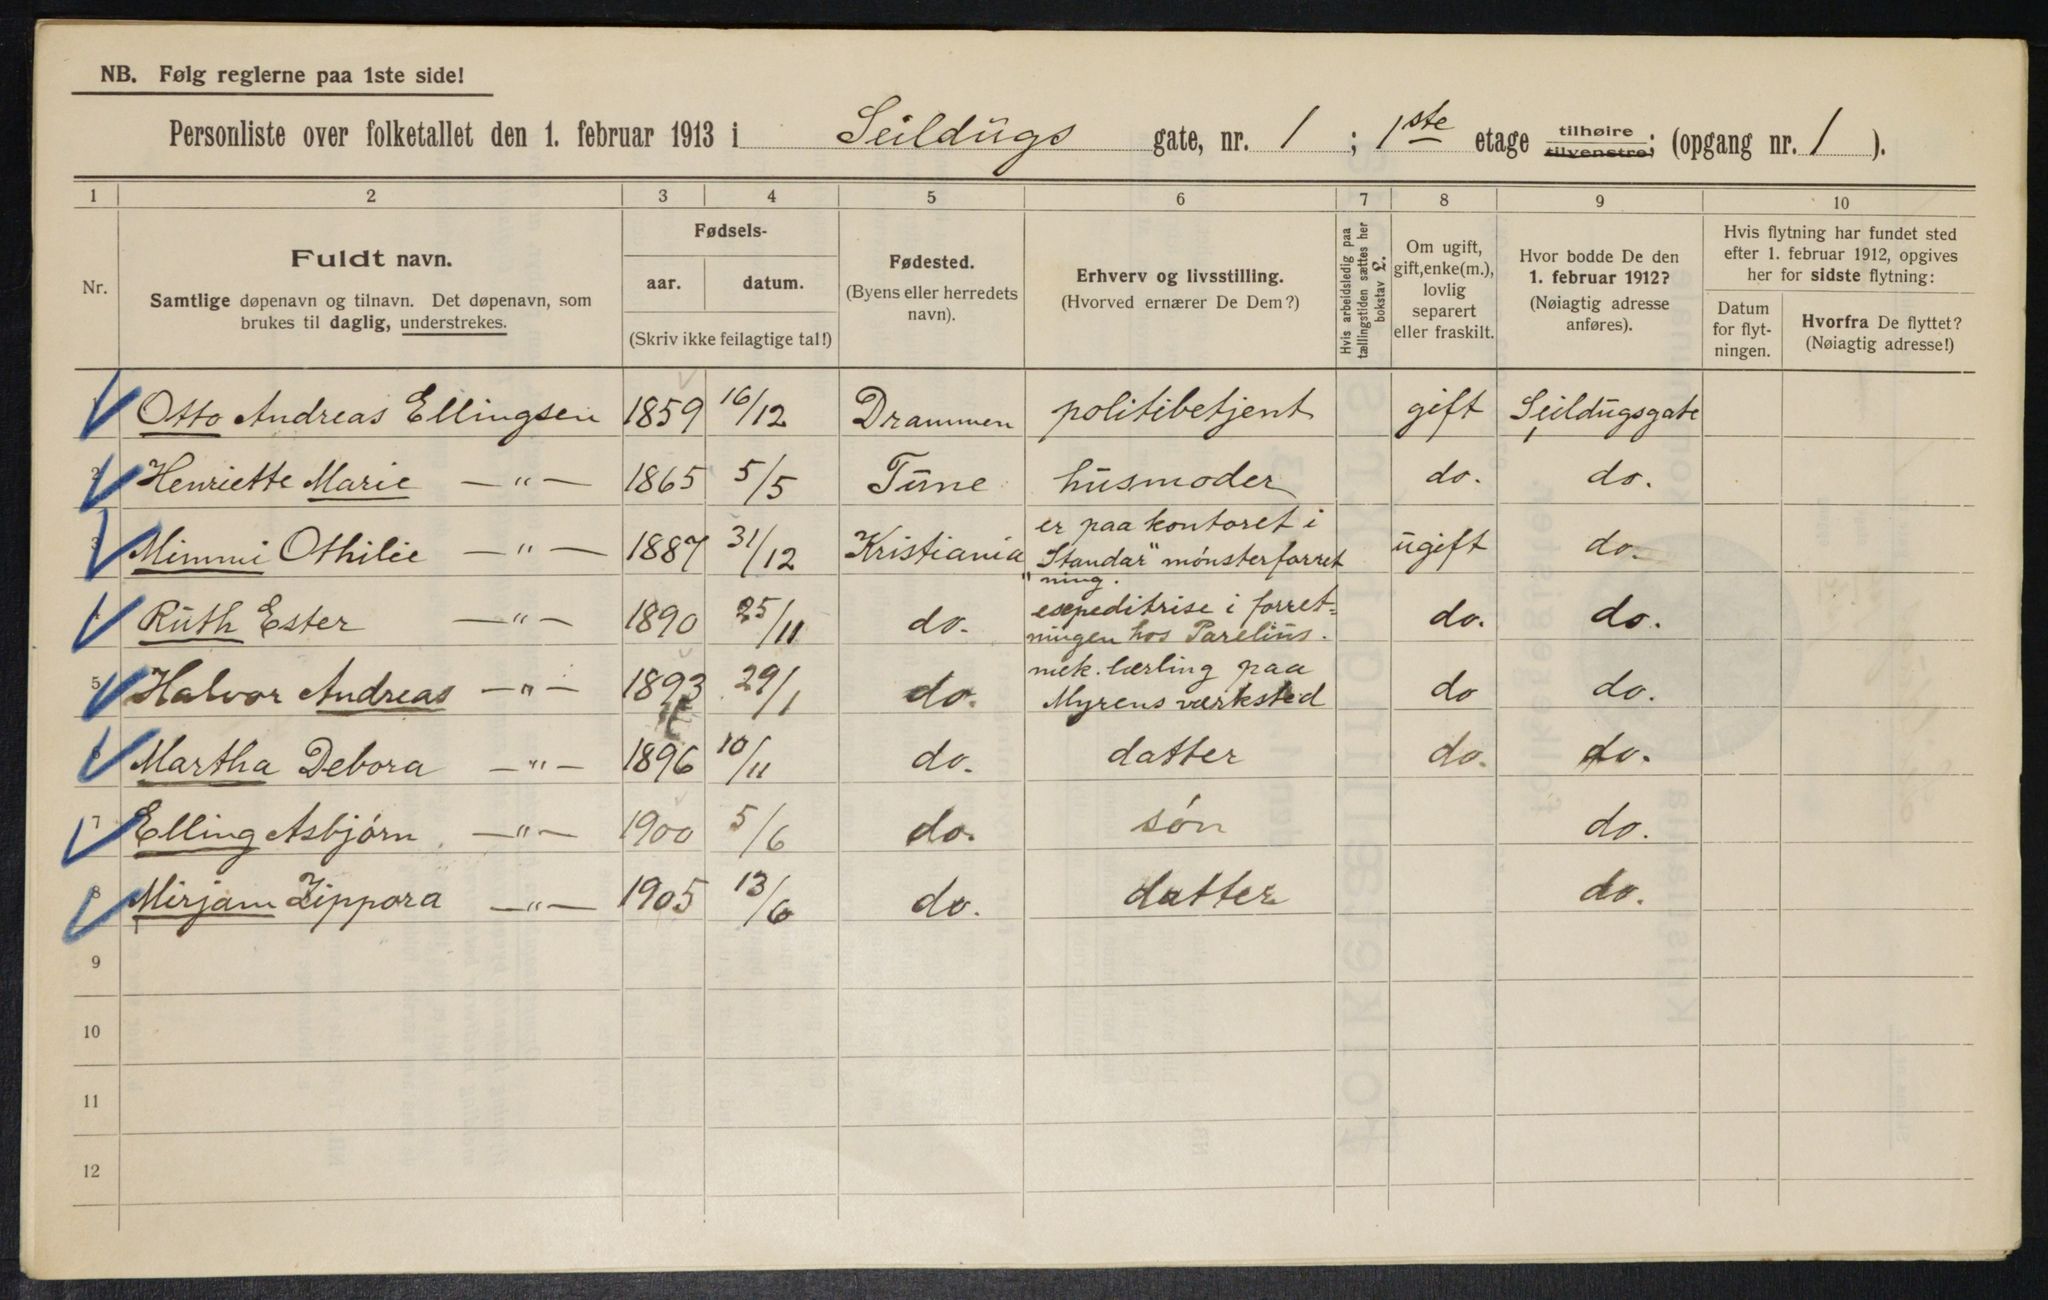 NB. Følg reglerne paa 1ste side!
Personliste over folketallet den 1. februar 1913 i Seildugs gate, nr. 1 ; 1ste etage tilhøire tilvenstre; (opgang nr. 1 ).
1 2 3 4 5 6 7 8 9 10
Nr.
Fuldt navn.
Samtlige døpenavn og tilnavn. Det døpenavn, som
brukes til daglig, understrekes.
Fødsels-
aar. datum.
(Skriv ikke feilagtige tal!)
Fødested.
(Byens eller herredets
navn).
Erhverv og livsstilling.
(Hvorved ernærer De Dem?)
Hvis arbeidsledig paa
tællingstiden sættes her
bokstav £.
Om ugift,
gift, enke(m.),
lovlig
separert
eller fraskilt.
Hvor bodde De den
1. februar 1912?
(Nøiagtig adresse
anføres).
Hvis flytning har fundet sted
efter 1. februar 1912, opgives
her for sidste flytning:
Datum
for flyt-
ningen.
Hvorfra De flyttet?
(Nøiagtig adresse!)
1 Otto Andreas Ellingsen 1859 16/12 Drammen politibetjent gift Seildugsgate 1
2 Henriette Marie — " — 1865 5/5 Tune husmoder do. do.
3 Mimmi Othilie — " — 1887 31/12 Kristiania er paa kontoret i
"Standar" mønsterforret
ning. ugift do.
4 Ruth Ester — " — 1890 25/11 do. expeditrise i forret=
ningen hos Parelius. do. do.
5 Halvor Andreas — " — 1893 29/1 do. mek. lærling paa
Myrens værksted do do.
6 Martha Debora — " — 1896 10/11 do. datter do. do.
7 Elling Asbjørn — " — 1900 5/6 do. søn do.
8 Mirjam Zippora — " — 1905 13/6 do. datter do.
9
10
11
12